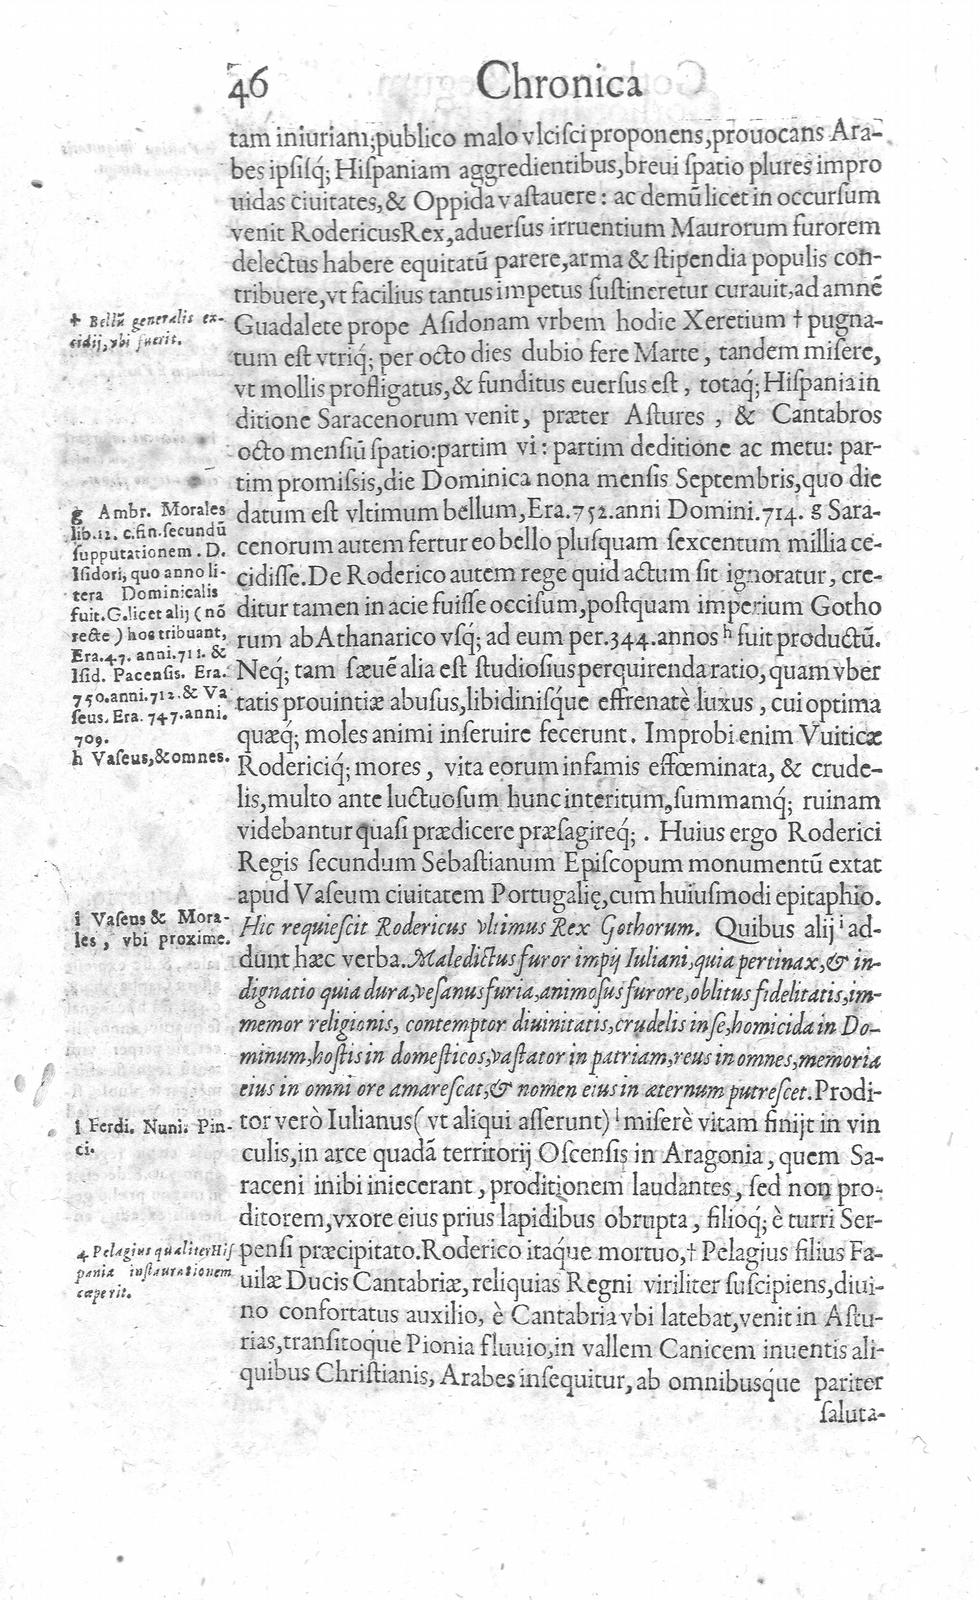 46 Chronica
tam iniuriam;publico malo vlciſci proponens,prouocans Ara-
bes ipſiſq́; Hiſpaniam aggredientibus,breui ſpatio plures impro
uidas ciuitates,& Oppida vaſtauere: ac demũ licet in occurſum
venit RodericusRex,aduerſus irruentium Maurorum furorem
delectus habere equitatũ parere,arma & ſtipendia populis con-
tribuere,vt facilius tantus impetus ſuſtineretur curauit,ad amnẽ
Guadalete prope Aſidonam vrbem hodie Xeretium † pugna-
tum eſt vtriq́; per octo dies dubio fere Marte, tandem miſere,
vt mollis profligatus,& funditus euerſus eſt, totaq́; Hiſpania in
ditione Saracenorum venit, præter Aſtures, & Cantabros
octo menſiũ ſpatio:partim vi: partim deditione ac metu: par-
tim promiſsis,die Dominica nona menſis Septembris,quo die
datum eſt vltimum bellum,Era.752.anni Domini.714. g Sara-
cenorum autem fertur eo bello pluſquam ſexcentum millia ce-
cidiſſe.De Roderico autem rege quid actum ſit ignoratur, cre-
ditur tamen in acie fuiſſe occiſum,poſtquam imperium Gotho
rum ab Athanarico vſq́; ad eum per.344.annos h fuit productũ.
Neq́; tam ſæuẽ alia eſt ſtudioſius perquirenda ratio, quam vber
tatis prouintiæ abuſus,libidiniſque effrenatè luxus, cui optima
quæq́; moles animi inſeruire fecerunt. Improbi enim Vuiticæ
Rodericiq́; mores, vita eorum infamis effœminata, & crude-
lis,multo ante luctuoſum hunc interitum,ſummamq́; ruinam
videbantur quaſi prædicere præſagireq́;. Huius ergo Roderici
Regis ſecundum Sebaſtianum Epiſcopum monumentũ extat
apud Vaſeum ciuitatem Portugalię,cum huiuſmodi epitaphio.
Hic requieſcit Rodericus vltimus Rex Gothorum. Quibus alij i ad-
dunt hæc verba.Maledictus furor impij Iuliani,quia pertinax,& in-
dignatio quia dura,veſanus furia,animoſus furore,oblitus fidelitatis,im-
memor religionis, contemptor diuinitatis,crudelis in ſe,homicida in Do-
minum,hoſtis in domeſticos,vaſtator in patriam,reus in omnes,memoria
eius in omni ore amareſcat,& nomen eius in æternum putreſcet.Prodi-
tor verò Iulianus(vt aliqui aſſerunt) l miſerè vitam finijt in vin
culis,in arce quadã territorij Oſcenſis in Aragonia, quem Sa-
raceni inibi iniecerant, proditionem laudantes, ſed non pro-
ditorem,vxore eius prius lapidibus obrupta, filioq́; è turri Ser-
penſi præcipitato.Roderico itaq́ue mortuo,† Pelagius filius Fa-
uilæ Ducis Cantabriæ,reliquias Regni viriliter ſuſcipiens,diui-
no confortatus auxilio, è Cantabria vbi latebat,venit in Aſtu-
rias,tranſitoq́ue Pionia fluuio,in vallem Canicem inuentis ali-
quibus Chriſtianis, Arabes inſequitur, ab omnibusq́ue pariter
ſaluta-
† Bellũ generalis ex-
cidij,vbi fuerit.
g Ambr. Morales
lib.12. c.fin.ſecundũ
ſupputationem. D.
Iſidori, quo anno li-
tera Dominicalis
fuit.G.licet alij (nõ
recte) hos tribuant,
Era.47. anni.711. &
Iſid. Pacenſis. Era.
750.anni.712.& Va
ſeus. Era. 747.anni.
709.
h Vaſeus,&omnes.
i Vaſeus & Mora-
les, vbi proxime.
l Ferdi. Nuni. Pin-
ci.
† Pelagius qualiter Hiſ
paniæ inſtaurationem
cœperit.